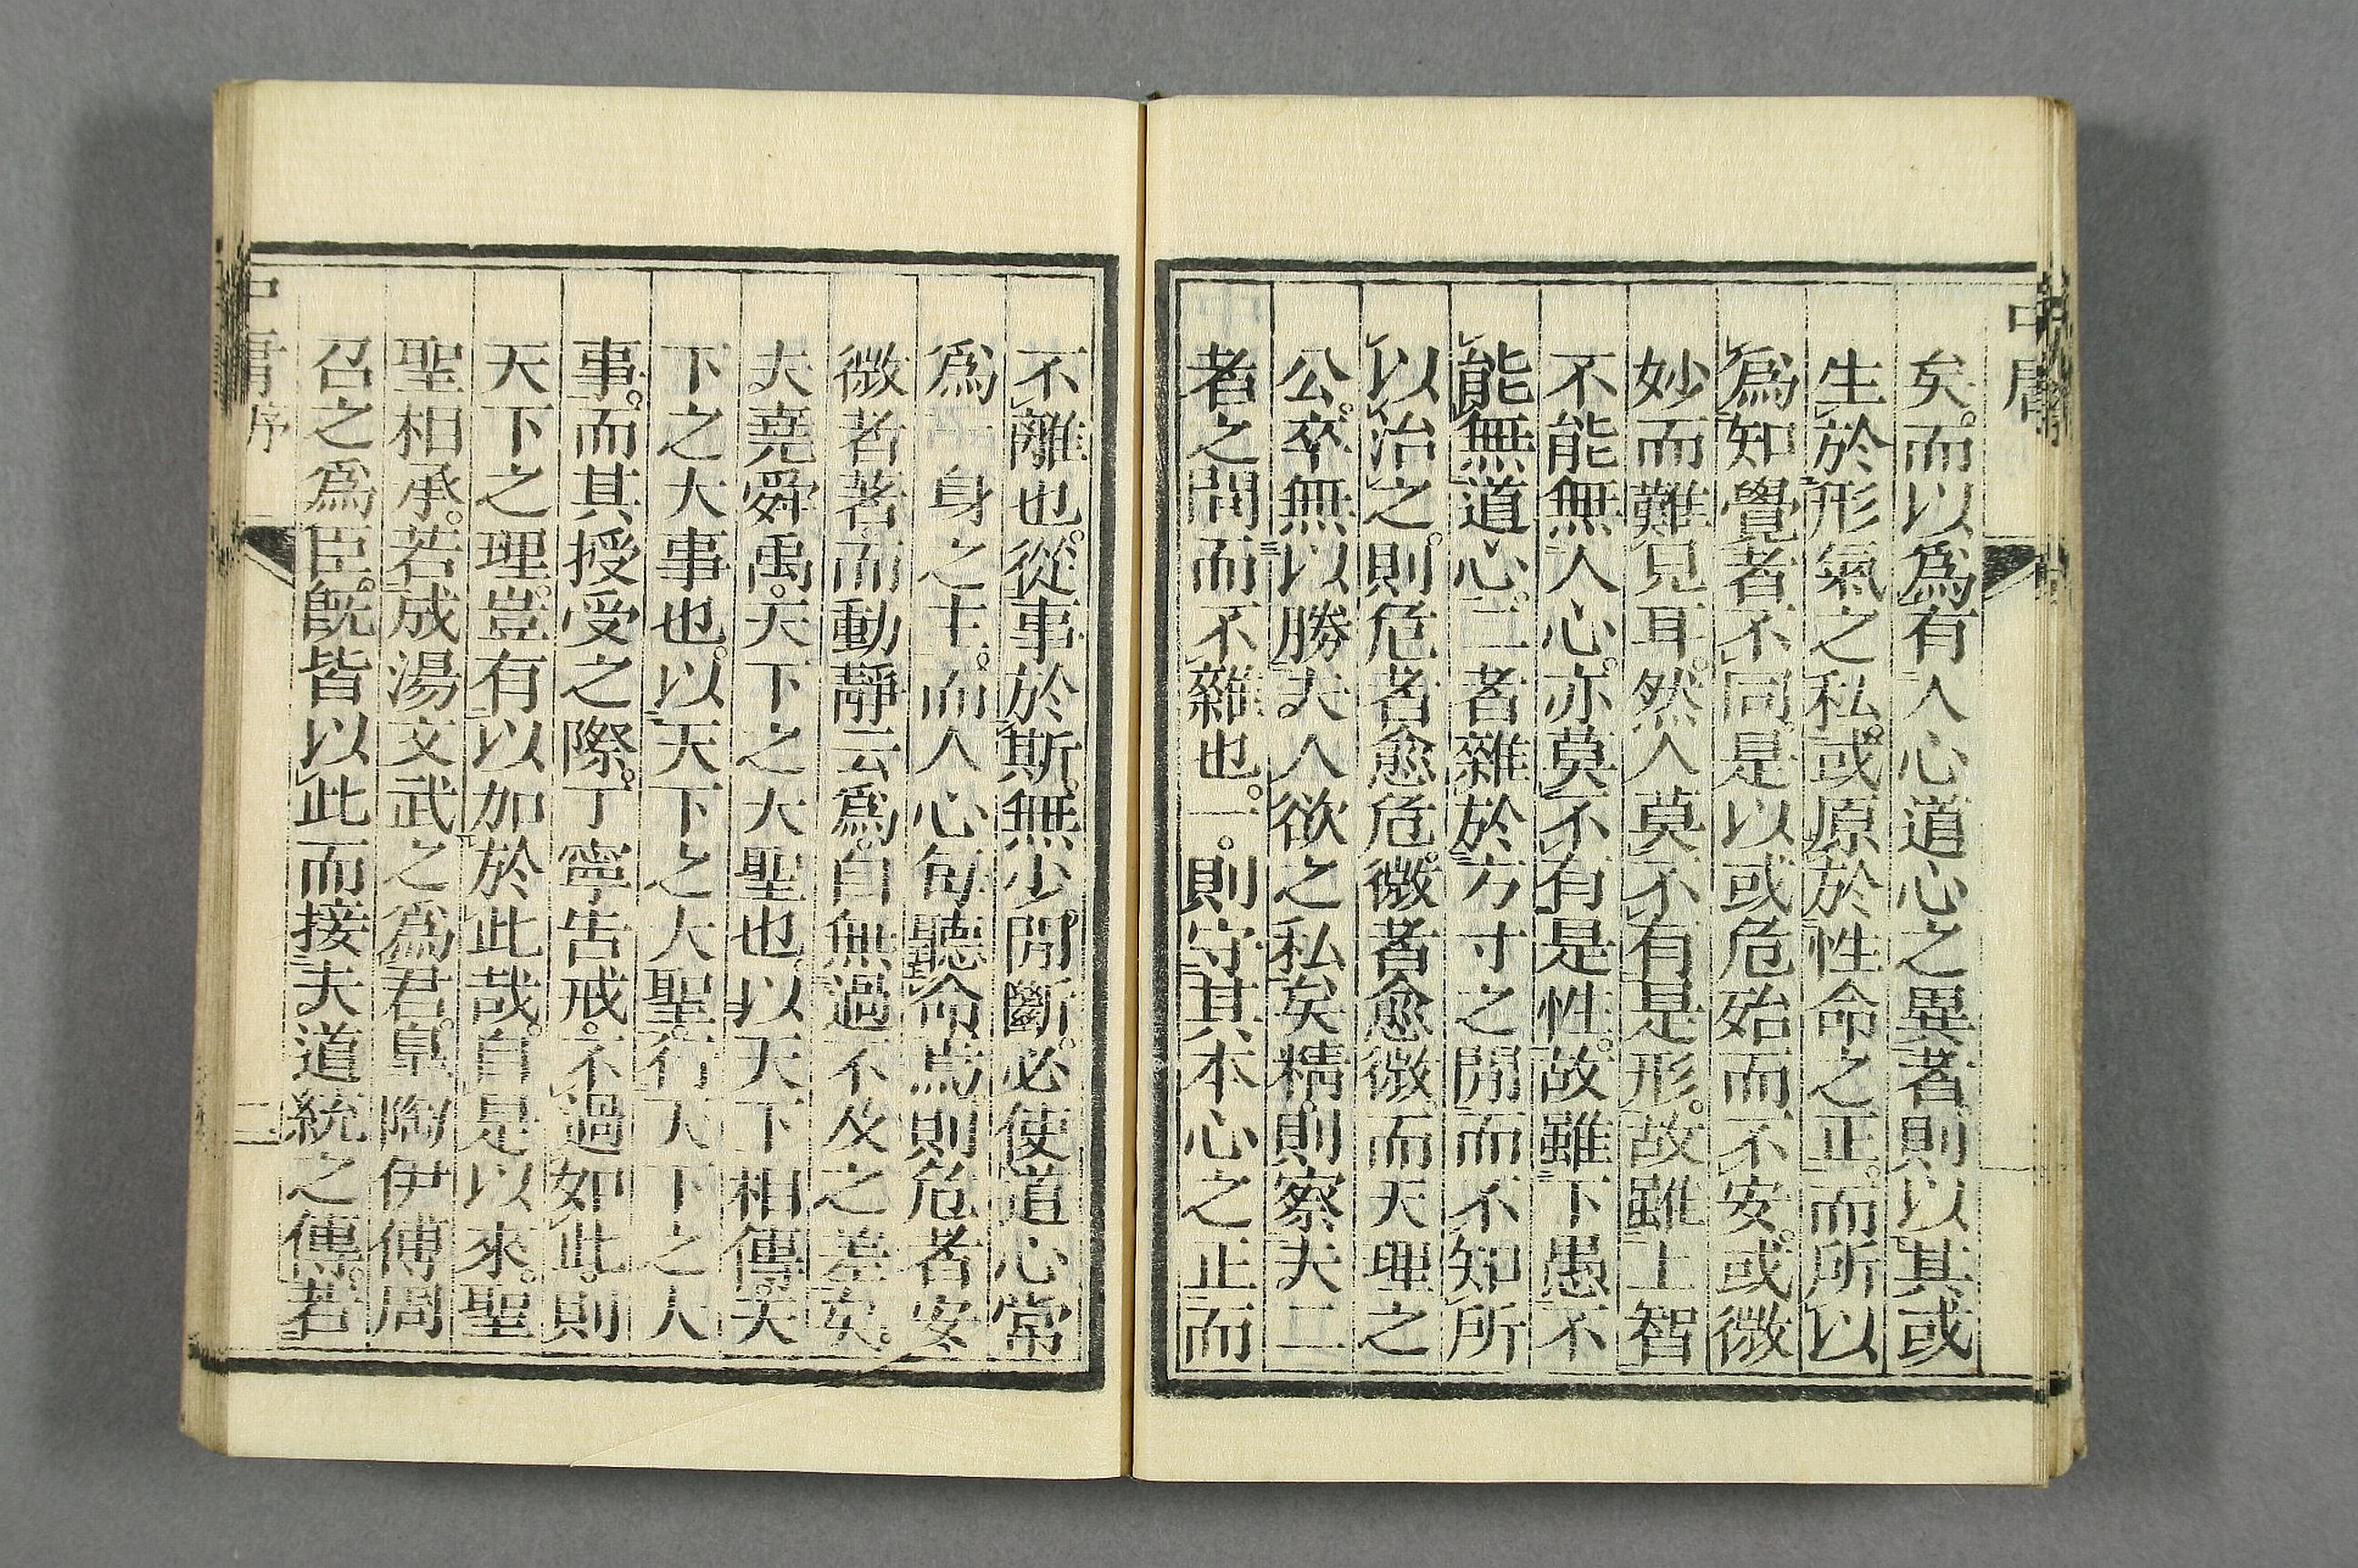 中庸
矣。而以爲有人心道心之異者。則以其或
生於形氣之私。或原於性命之正。而所以
爲知覺者不同。是以或危殆而不安。或微
妙而難見耳。然人莫不有是形。故雖上智
不能無人心。亦莫不有是性。故雖下愚不
能無道心。二者雜於方寸之閒。而不知所
以治之。則危者愈危。微者愈微。而天理之
公。卒無以勝夫人欲之私矣。精。則察夫二
者之間而不雜也。一。則守其本心之正而
不離也。從事於斯。無少閒斷。必使道心常
爲 身之主。而人心每聽命焉。則危者安
微者著。而動靜云爲。自無過不及之差矣。
夫堯舜禹。天下之大聖也。以天下相傳。天
下之大事也。以天下之大聖。行天下之大
事。而其授受之際。丁寧告戒。不過如此。則
天下之理。豈有以加於此哉。自是以來。聖
聖相承。若成湯文武之爲君。皐陶伊傅周
召之爲臣。既皆以此而接夫道統之傳。若
中庸序
二